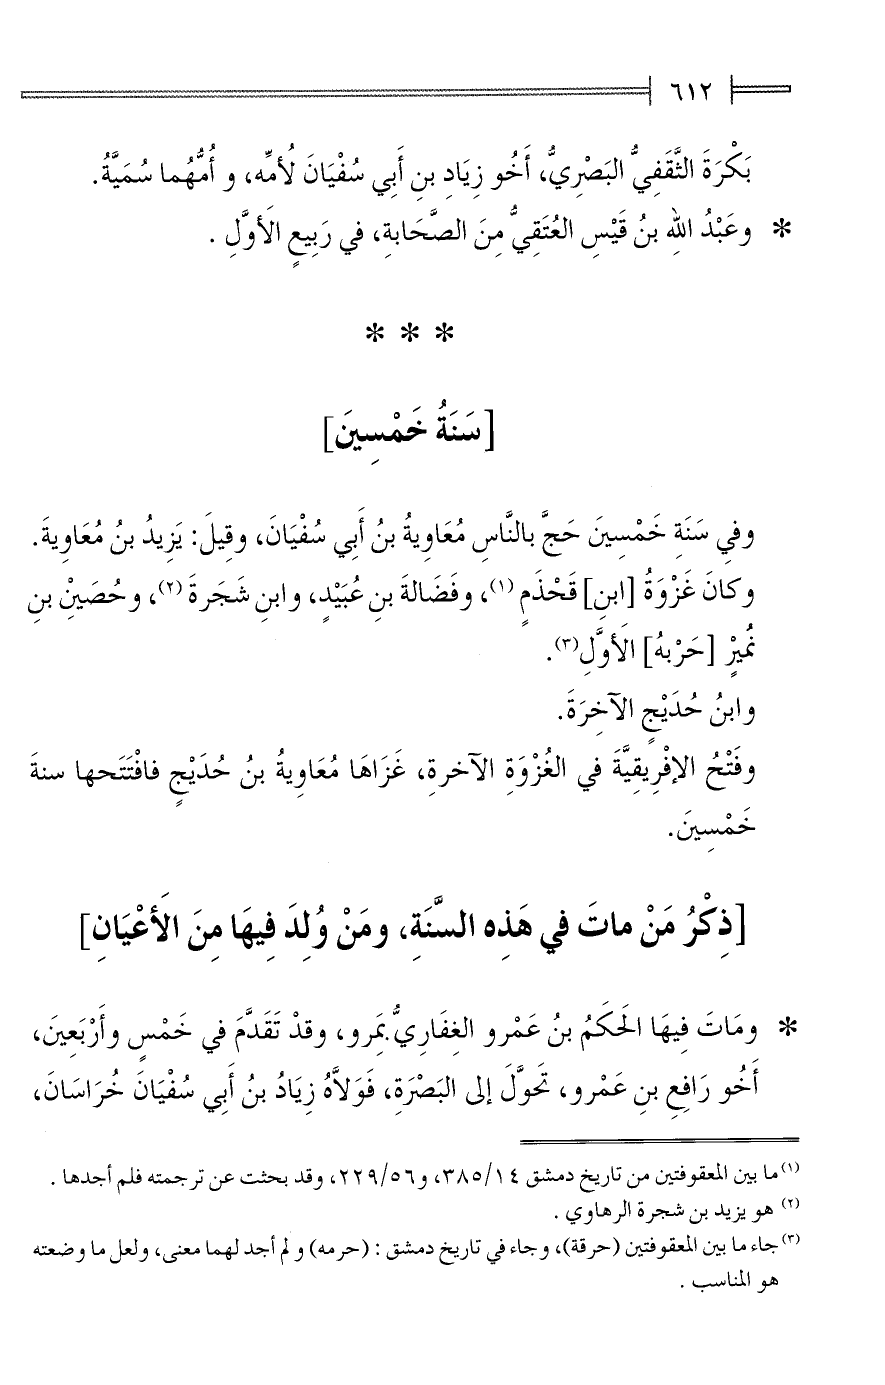 ٦١٢
بَكْرَةَ الثَّقَفِيُّ البَصْرِيُّ، أَخُو زِيَادِ بنِ أَبي سُفْيَانَ لُأمِّه، و أُمُّهُما سُمَيَّةُ.
* وعَبْدُ اللهِ بنُ قَيْسِ العُتَقِيُّ مِنَ الصَّحَابةِ، في رَبِيعٍ الأَوَّلِ .
* * *
[سَنَةُ خَمْسِينَ]
وفي سَنَةِ خَمْسِينَ حَجَّ بالنَّاسِ مُعَاويةُ بنُ أَبي سُفْيَانَ، وقِيلَ: يَزِيدُ بنُ مُعَاويةَ.
وكانَ غَزْوَةُ [ابنِ] قَحْذَمٍ (١)، وفَضَالةَ بنِ عُبَيْدٍ، وابنِ شَجَرةَ (٢)، وحُصَيْنْ بنِ
نُمِيرْ [حَرْبهُ] الأَوَّلِ(٣).
وابنُ حُدَيْجٍ الآخِرَةَ.
وفَتْحُ الإفْرِيقِيَّةَ في الغُزْوَةِ الآخرةِ، غَزَاهَا مُعَاويةُ بنُ حُدَيْجٍ فافْتَتَحها سنةَ
خَمْسِينَ.
[ذِكْرُ مَنْ ماتَ في هَذِه السَّنَةِ، ومَنْ وُلِدَ فِيهَا مِنَ الأَعْيَانِ]
* ومَاتَ فِيهَا الحَكَمُ بنُ عَمْرو الغِفَاريُّ بَمرو، وقدْ تَقَدَّمَ في خَمْسٍ وأَرْبَعينَ،
أَخُو رَافِعِ بنِ عَمْرو، تَحوَّلَ إلى البَصْرَةِ، فَوَلاَّهُ زِيَادُ بنُ أَبي سُفْيَانَ خُرَاسَانَ،
(١) ما بين المعقوفتين من تاريخ دمشق ٣٨٥/١٤، و٢٢٩/٥٦، وقد بحثت عن ترجمته فلم أجدها .
(٢) هو يزيد بن شجرة الرهاوي .
(٣) جاء ما بين المعقوفتين (حرقة)، وجاء في تاريخ دمشق : (حرمه) ولم أجد لهما معنى، ولعل ما وضعته
هو المناسب .